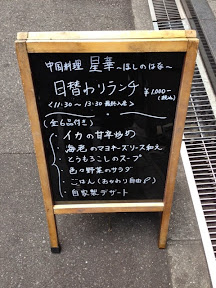 中国料理 星華 ～ほしのはな～
日替わりランチ ¥1,000-
(税込)
<11:30～13:30 最終入店>
(全6品付き)
・イカの甘辛炒め
・海老のマヨネーズソース和え
・とうもろこしのスープ
・色々野菜のサラダ
・ごはん(おかわり自由
・自家製デザート